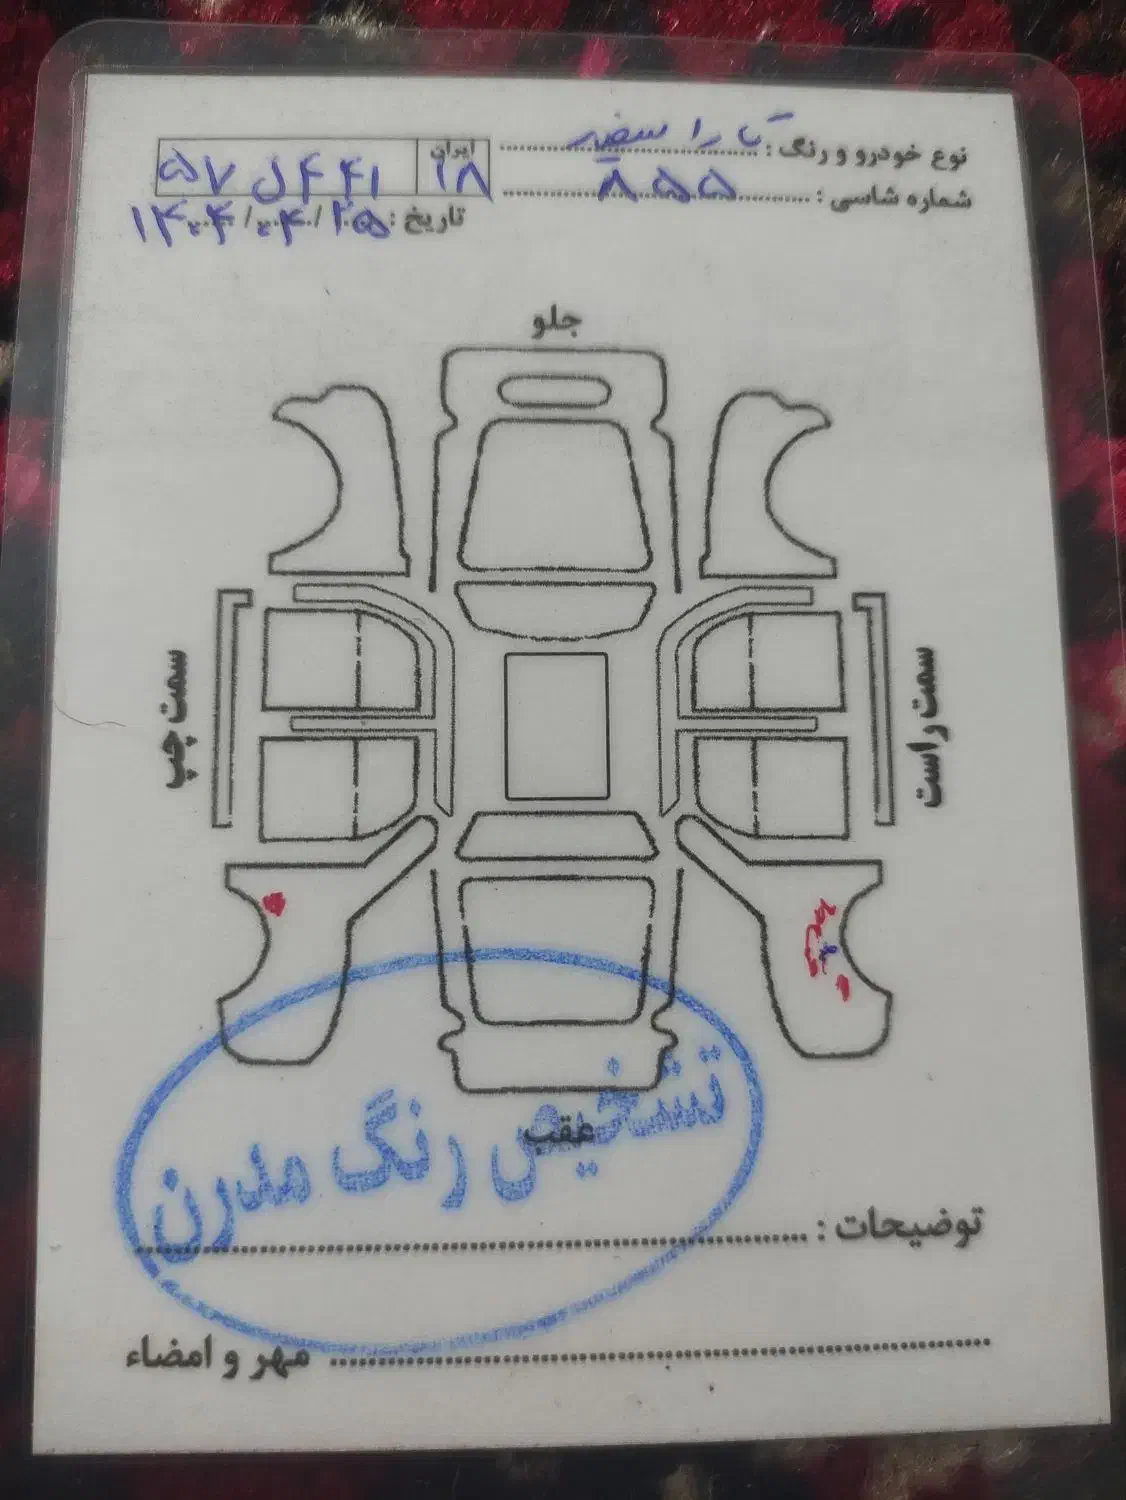 نوع خودرو و رنگ : تارا سفید
شماره شاسی : ۸۵۵
ایران ۱۸
۵۷ ل ۴۴۱
تاریخ : ۱۴۰۴/۰۴/۲۵
جلو
سمت چپ
سمت راست
عقب
تشخیص رنگ مدرن
توضیحات :
مهر و امضاء